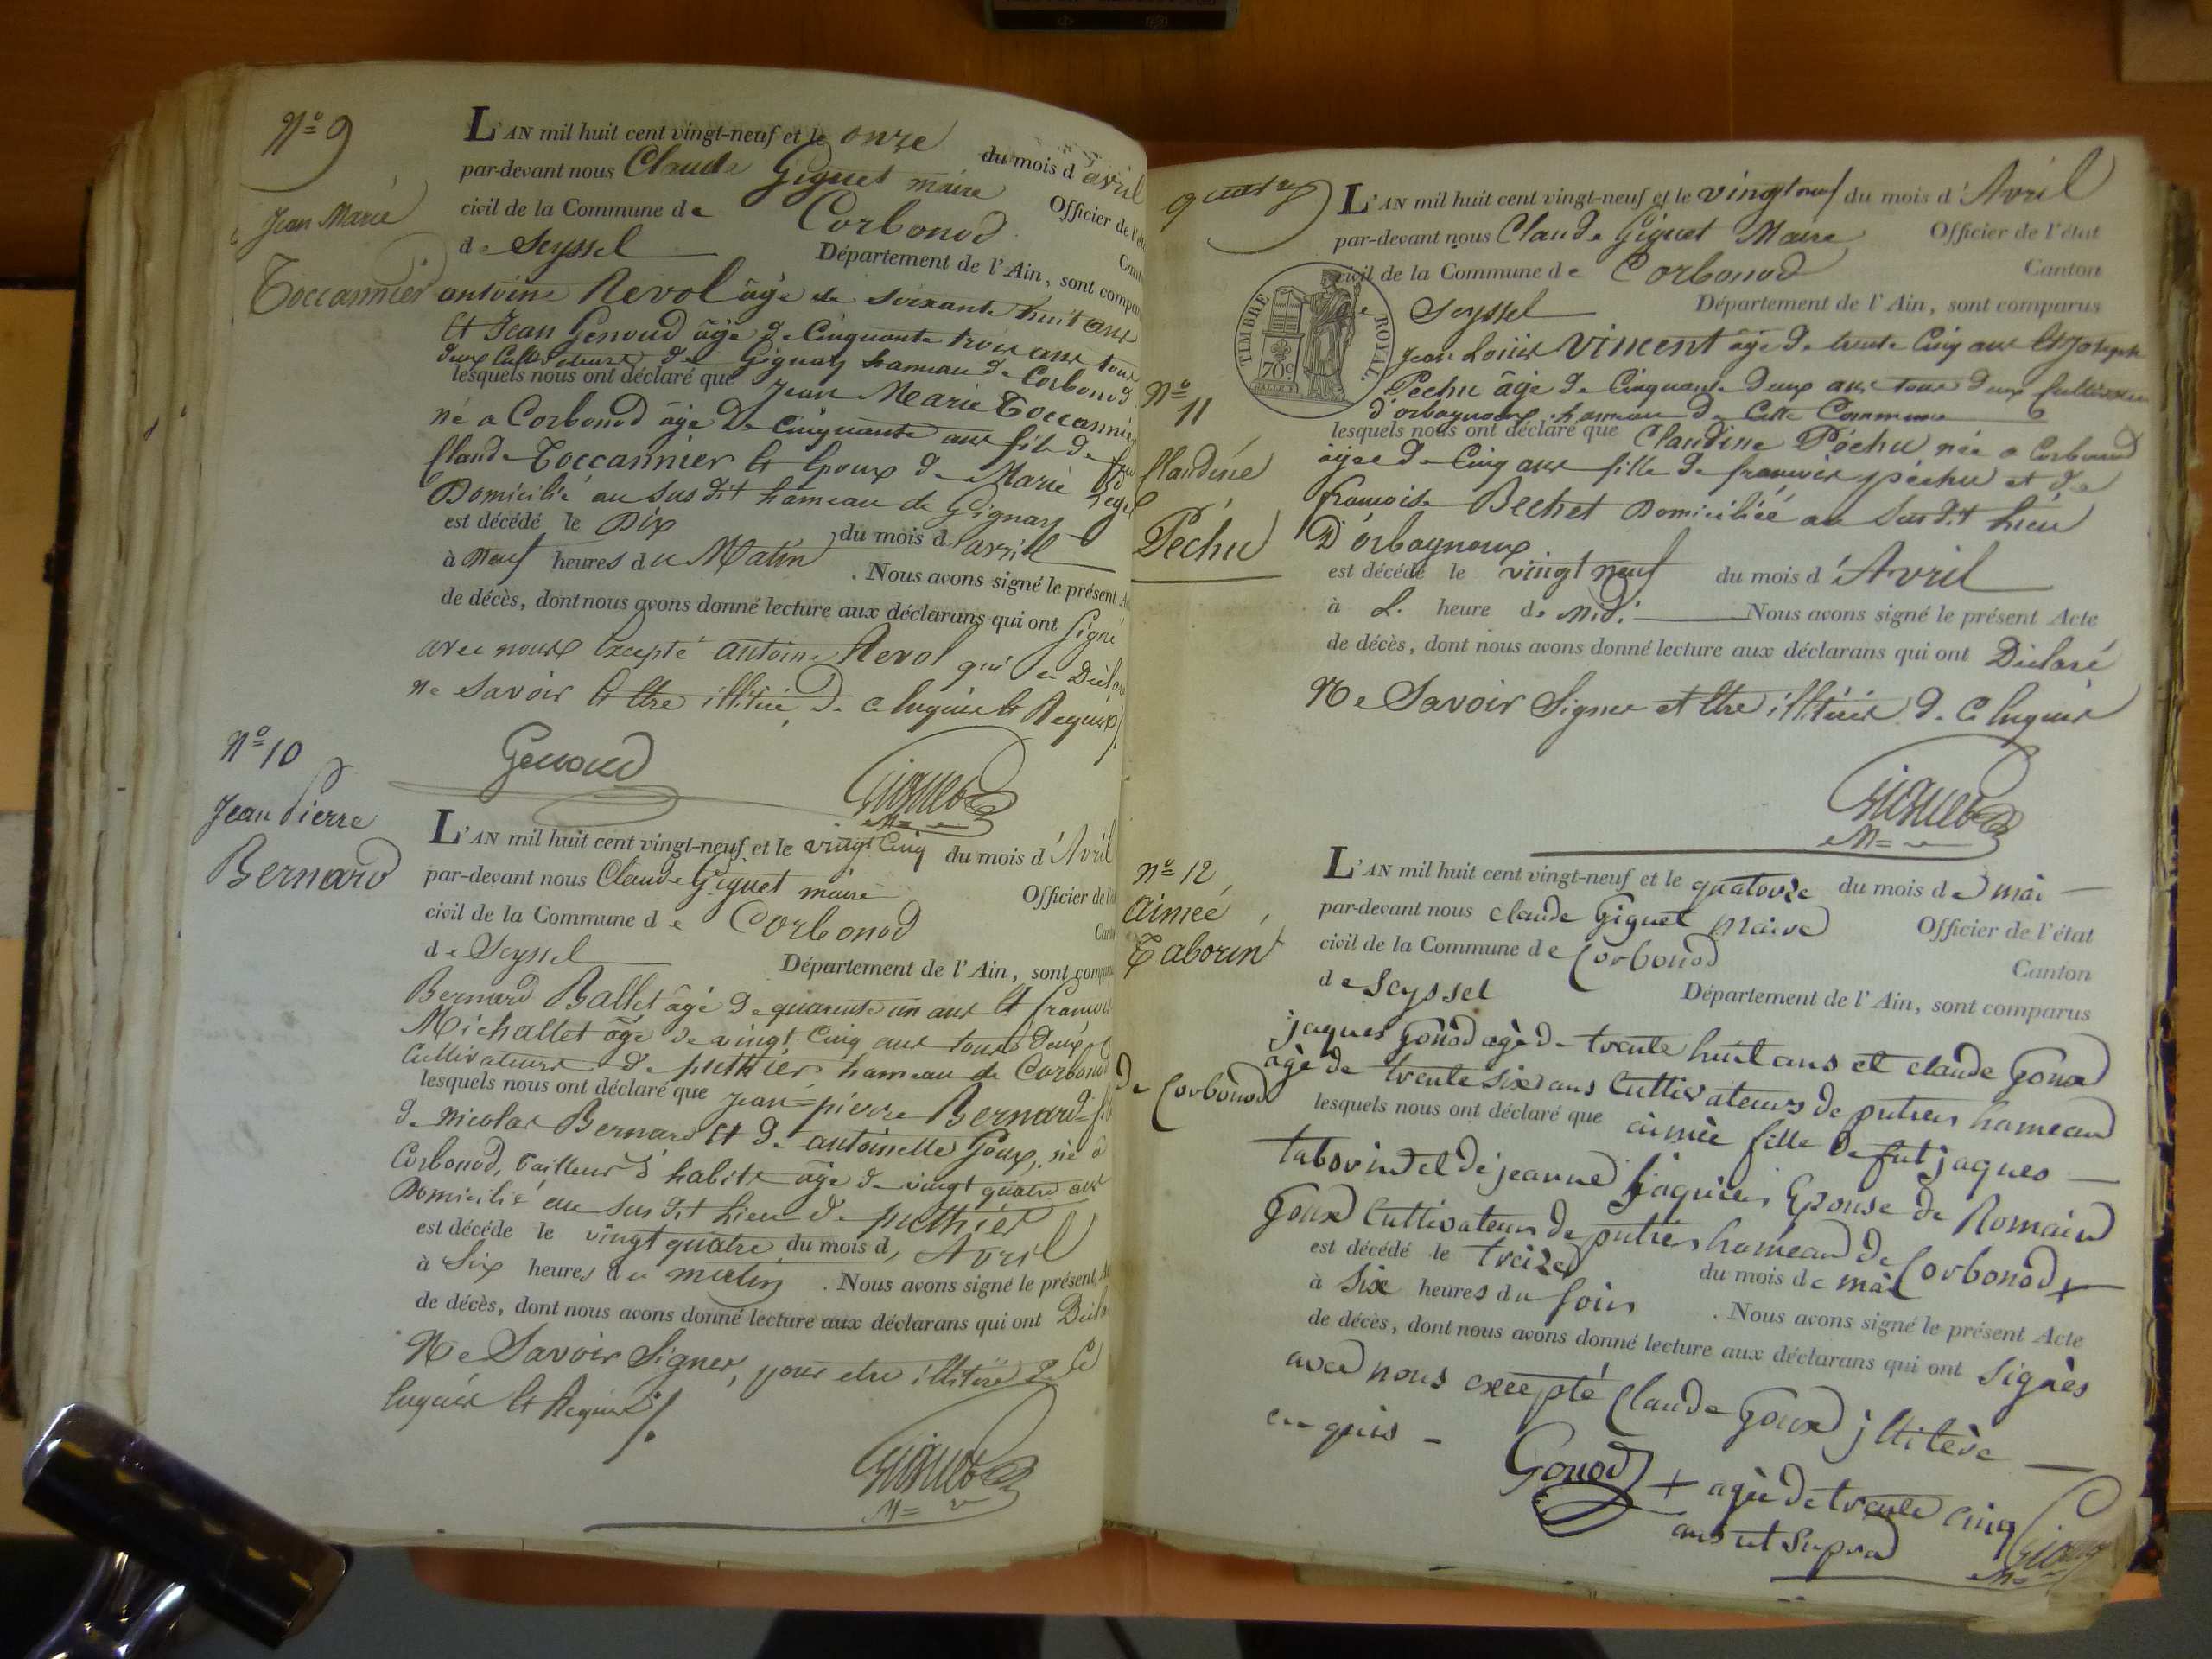 N° 9
Jean Marie
Toccannier
L'AN mil huit cent vingt-neuf et le onze du mois d'avril
par-devant nous Claude Giguet maire Officier de l'éta
civil de la Commune de Corbonod Cant
de Seyssel Département de l'Ain, sont compar
antoine Revol âgé de soixante huit ans
et Jean Genoud âgé de Cinquante trois ans tous
deux Cultivateurs de Gignay hameau de Corbonod
lesquels nous ont déclaré que Jean Marie Toccannier
né a Corbonod âgé De Cinquante ans fils de feu
Claude Toccannier et Epoux de Marie
Domicilié au susdit hameau de Gignay
est décédé le Dix du mois d'avril
à Neuf heures du Matin . Nous avons signé le présent A
de décès, dont nous avons donné lecture aux déclarans qui ont signé
avec nous Excepté antoine Revol qui a Déclaré
ne savoir et être illitéré de ce Enquis et Requis
Genoud
Giguet
M=
N° 10
Jean Pierre
Bernard
L'AN mil huit cent vingt-neuf et le vingt Cinq du mois d'Avril
par-devant nous Claude Giguet maire Officier de l'é
civil de la Commune de Corbonod Cant
de Seyssel Département de l'Ain, sont compa
Bernard Ballet âgé de quarente un ans et francois
Michallet âgé de vingt Cinq ans tous Deux
Cultivateurs de puthier hameau de Corbonod
lesquels nous ont déclaré que Jean=pierre Bernard fils
de nicolas Bernard et de antoinette Goux, né à
Corbonod, tailleur d'habits âgé de vingt quatre ans
Domicilié au susdit Lieu de puthier
est décédé le vingt quatre du mois d'Avril
à Six heures du matin . Nous avons signé le présent A
de décès, dont nous avons donné lecture aux déclarans qui ont Décla
Ne Savoir Signer, pour etre illitéré de Ce
Enquis et Requis
Giguet
M=
L'AN mil huit cent vingt-neuf et le vingt neuf du mois d'Avril
par-devant nous Claude Giguet Maire Officier de l'état
civil de la Commune de Corbonod Canton
de Seyssel Département de l'Ain, sont comparus
TIMBRE ROYAL.
70c.
N° 11
Claudine
Péchu
Jean Louis Vincent âgé de trente Cinq ans et Joseph
Péchu âgé de Cinquante deux ans tous deux Cultivateurs
d'orbagnoux hameau de Cette Commune
lesquels nous ont déclaré que Claudine Péchu née a Corbonod
âgée de Cinq ans fille de francois péchu et de
francoise Bechet Domiciliée au susdit Lieu
D'orbagnoux
est décédé le vingt neuf du mois d'Avril
à L. heure de Midi Nous avons signé le présent Acte
de décès, dont nous avons donné lecture aux déclarans qui ont Déclaré
Ne Savoir Signer et être illitérés de Ce Enquis
Giguet
M=
n° 12
Aimée
Taborin
L'AN mil huit cent vingt-neuf et le quatorze du mois de mai
par-devant nous claude Giguet maire Officier de l'état
civil de la Commune de Corbonod Canton
de Seyssel Département de l'Ain, sont comparus
jaques Gonod agé de trente huit ans et claude Goux
âgé de trente six ans Cultivateurs de putier hameau
de Corbonod
lesquels nous ont déclaré que aimée fille de fut jaques
taborin et de jeanne Epouse de Romain
Goux Cultivateur de putier hameau de Corbonod +
est décédé le treize du mois de mai
à Six heures du soir . Nous avons signé le présent Acte
de décès, dont nous avons donné lecture aux déclarans qui ont signés
avec nous excepté Claude Goux illitéré
enquis
Gonod + agée de trente cinq
ans ut supra
Giguet
M=